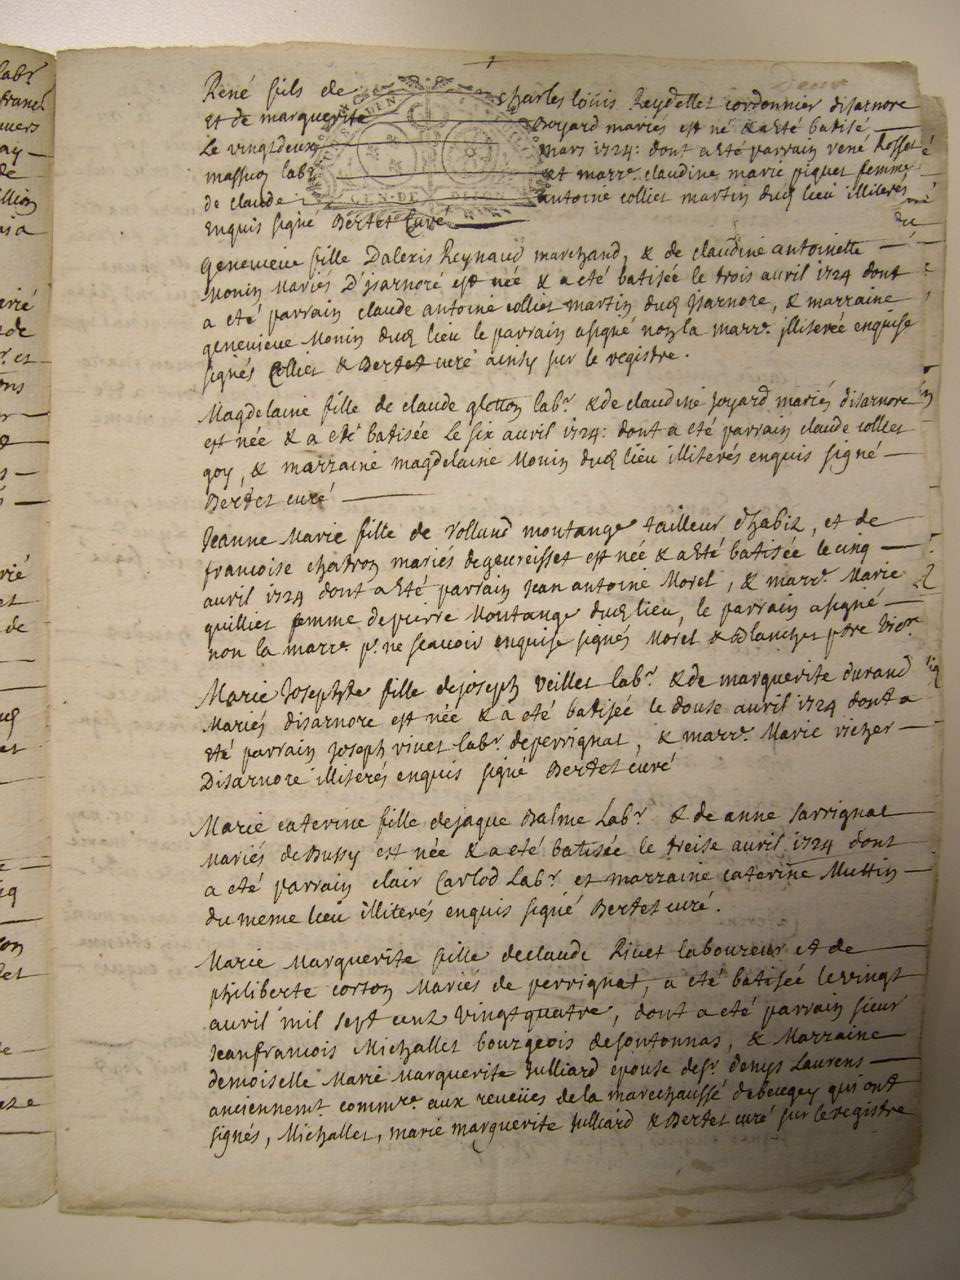 René fils de Charles louis Reydellet cordonnier disarnore
et de marguerite Boyard mariés est né & a eté batisé
Le vingtdeux mars 1724: dont a eté parrain rené Rosset
massuon labr. et marre. claudine marie piquet femme
de claude antoine colliet martin dud lieu illiterés
enquis signé Bertet Curé
GEN. DE DIJON
genevieve fille D'alexis Reynaud marchand, & de claudine antoinette
Monin Mariés D'jsarnore est née & a eté batisée le trois avril 1724 dont
a eté parrain claude antoine colliet martin dud Jsarnore, & marraine
genevieve Monin dud lieu le parrain a signé non la marre. illiterée enquise
signés Colliet & Bertet curé ainsy sur le registre.
Magdelaine fille de claude gletton labr. & de claudine joyard mariés disarnore
est née & a eté batisée Le six avril 1724: dont a été parrain claude colliet
goy, & marraine magdelaine Monin dud lieu illiterés enquis signé
Bertet curé
Jeanne Marie fille de rolland montange tailleur d'habit, et de
francoise chatron mariés de geureisset est née & a eté batisée le cinq
avril 1724 dont a eté parrain Jean antoine Morel, & marre. Marie
quillier femme de pierre Montange dud lieu, le parrain a signé
non la marre. pr. ne scavoir enquise signés Morel & Blanchet ptre vicre.
Marie Josephte fille de joseph veillet labr. & de marguerite durand
Mariés disarnore est née & a eté batisée le douse avril 1724 dont a
eté parrain Joseph vivet labr. de perrignat, & marre. Marie richer
Disarnore illiterés enquis signé Bertet curé
Marie caterine fille de jaque Balme Labr. & de anne sarrignat
Mariés de Bussy est née & a eté batisée le treise avril 1724 dont
a eté parrain clair Carlod Labr. et marraine caterine Muttin
du meme lieu illiterés enquis signé Bertet curé.
Marie Marguerite fille de claude Rivet laboureur et de
philiberte corton Mariés de perrignat, a eté batisée le vingt
avril mil sept cent vingt quatre, dont a eté parrain sieur
Jeanfrancois Michallet bourgeois de sontonnas, & Marraine
demoiselle Marie Marguerite Julliard epouse de sr. denys Laurens
anciennemt commre. aux reveües de la marechaussé de beugey qui ont
signés, Michallet, marie marguerite Julliard & Bertet curé sur le registre